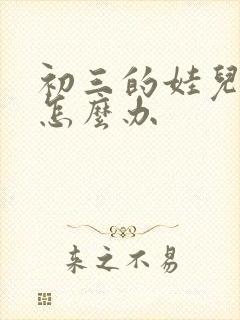 初三的娃兒
怎麼办
来之不易